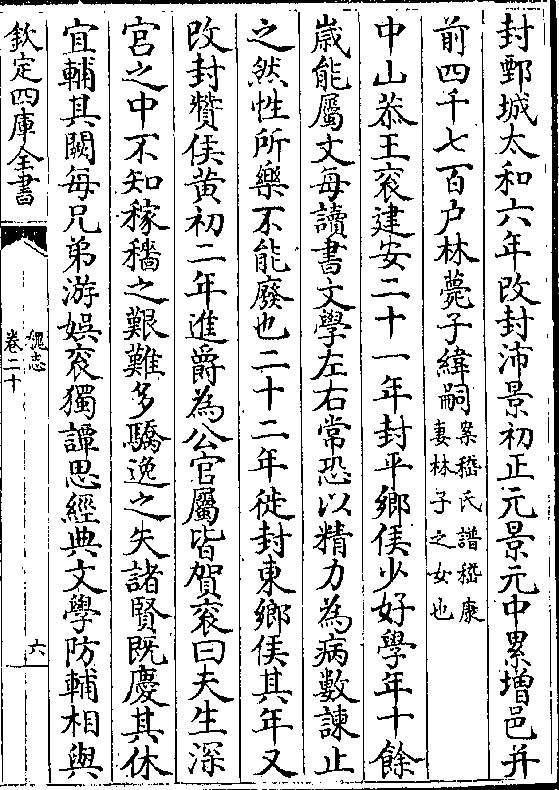 封鄄城太和六年改封沛景初正元景元中累增邑并
前四千七百户林薨子緯嗣案嵇氏譜嵇康妻林子之女也
中山恭王衮建安二十一年封平鄉侯少好學年十餘
嵗能屬文每讀書文學左右常恐以精力為病數諫止
之然性所樂不能廢也二十二年徙封東鄉侯其年又
改封贊侯黄初二年進爵為公官屬皆賀衮曰夫生深
宫之中不知稼穡之艱難多驕逸之失諸賢既慶其休
宜輔其闕每兄弟游娯衮獨譚思經典文學防輔相與
欽定四庫全書
魏志
卷二十
六